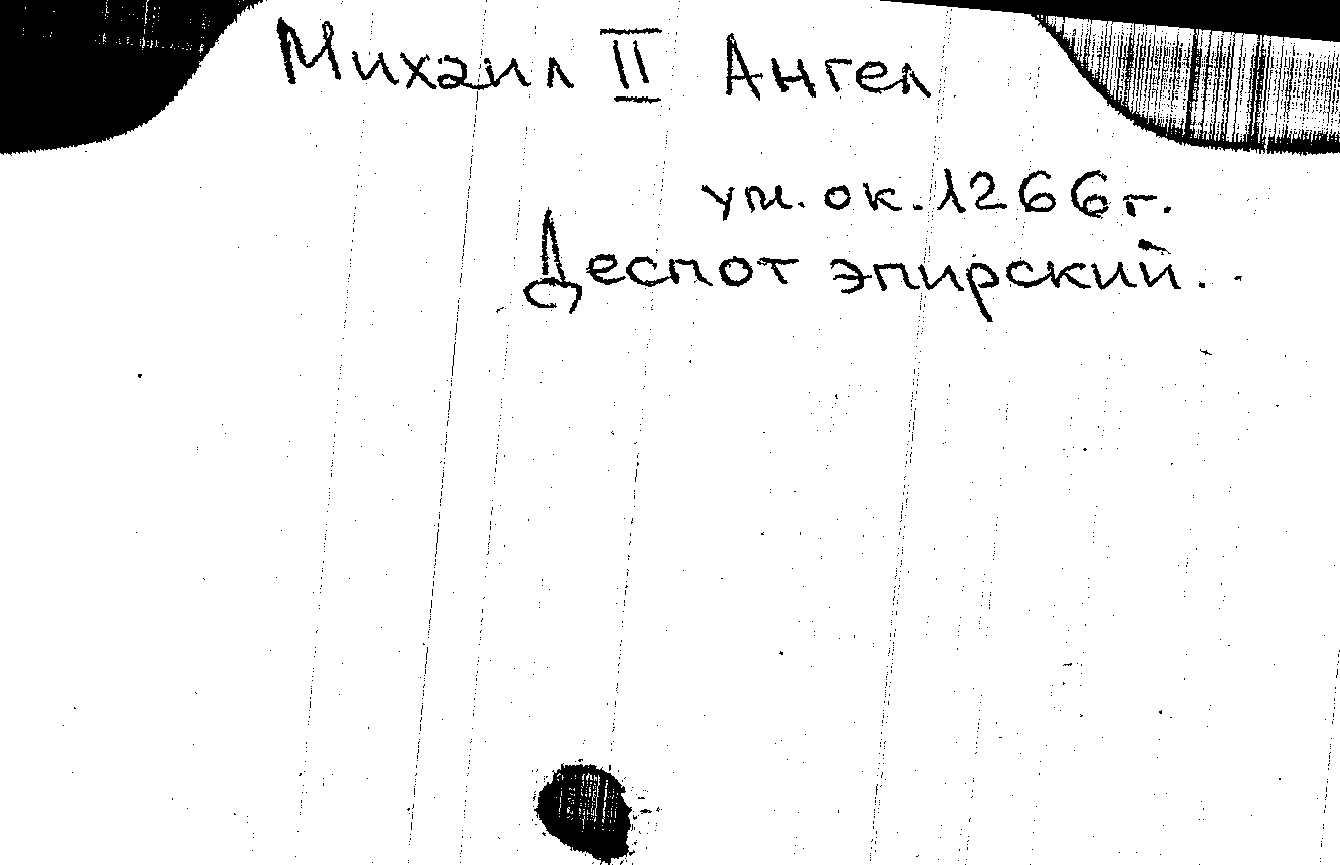 Михаил II Ангел
ум. ок. 1266 г.
Деспот эпирский.